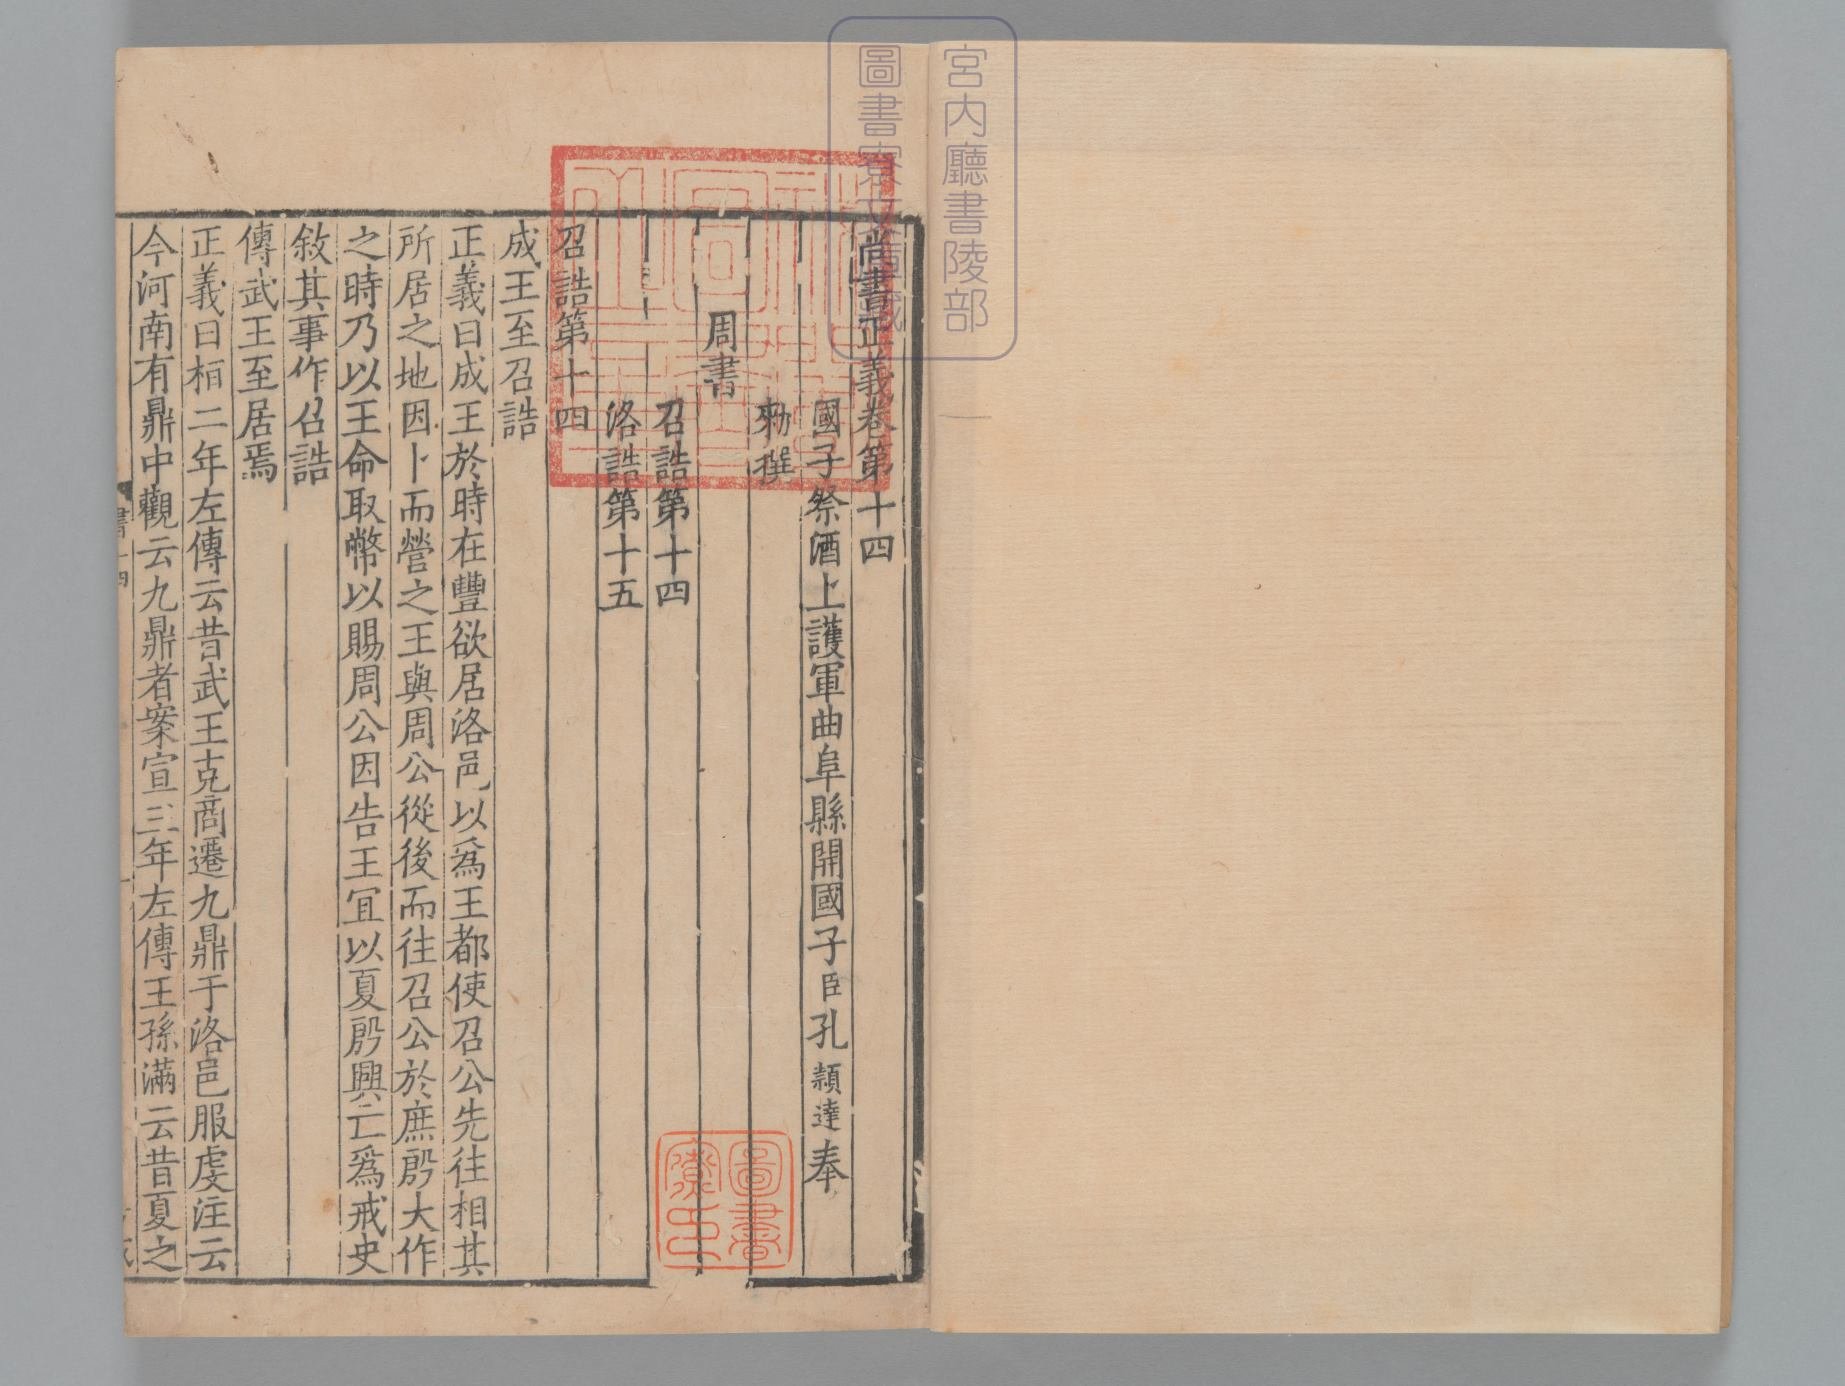 宮内廳書陵部
圖書寮文庫藏
尚書正義卷第十四
國子祭酒上護軍曲阜縣開國子臣孔穎達奉
勑撰
周書
召誥第十四
洛誥第十五
召誥第十四
成王至召誥
正義曰成王於時在豐欲居洛邑以爲王都使召公先往相其
所居之地因卜而營之王與周公從後而往召公於庶殷大作
之時乃以王命取幣以賜周公因告王宜以夏殷興亡爲戒史
敘其事作召誥
傳武王至居焉
正義曰桓二年左傳云昔武王克商遷九鼎于洛邑服虔注云
今河南有鼎中觀云九鼎者案宣三年左傳王孫滿云昔夏之
書十四
圖書寮印